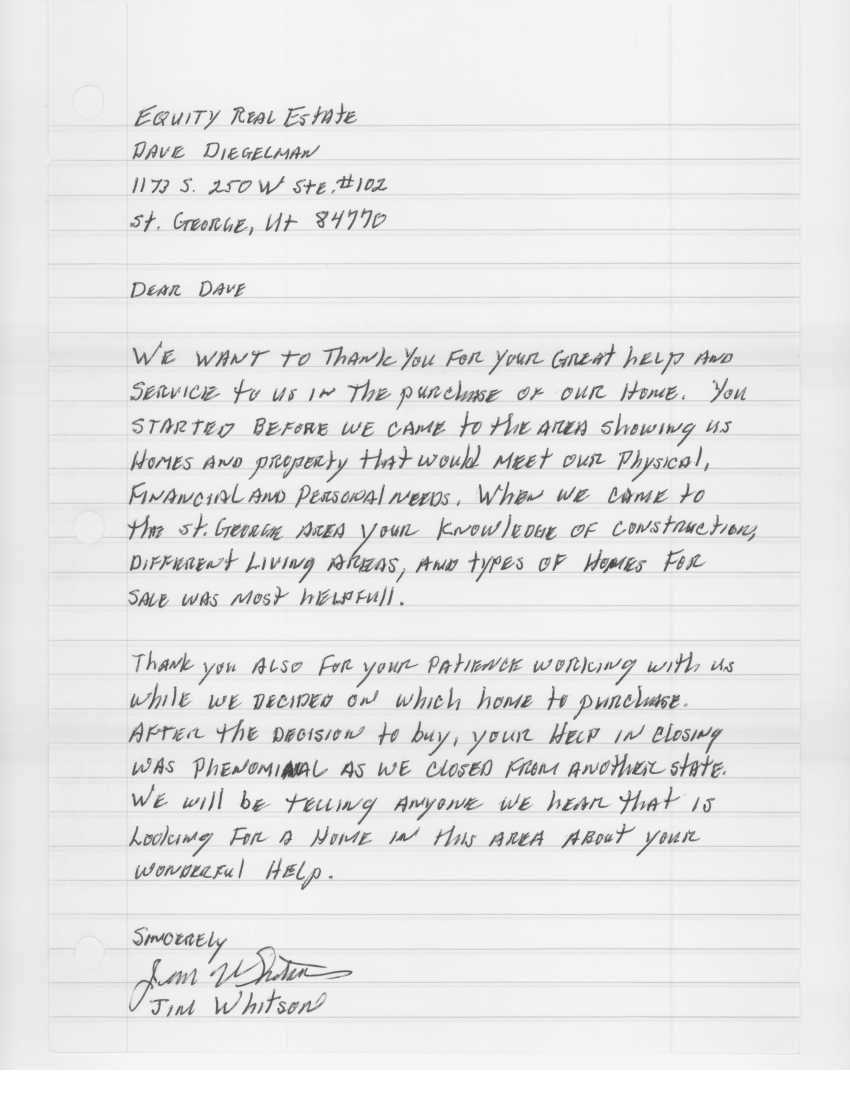 Equity Real Estate
Dave Diegelman
1173 S. 250 W Ste. #102
St. George, Ut 84770
Dear Dave
We want to thank you for your great help and
service to us in the purchase of our home. You
started before we came to the area showing us
homes and property that would meet our physical,
financial and personal needs. When we came to
the St. George area your knowledge of construction,
different living areas, and types of homes for
sale was most helpfull.
Thank you also for your patience working with us
while we decided on which home to purchase.
After the decision to buy, your help in closing
was phenominal as we closed from another state.
We will be telling anyone we hear that is
looking for a home in this area about your
wonderful help.
Sincerely
Jim Whitson
Jim Whitson